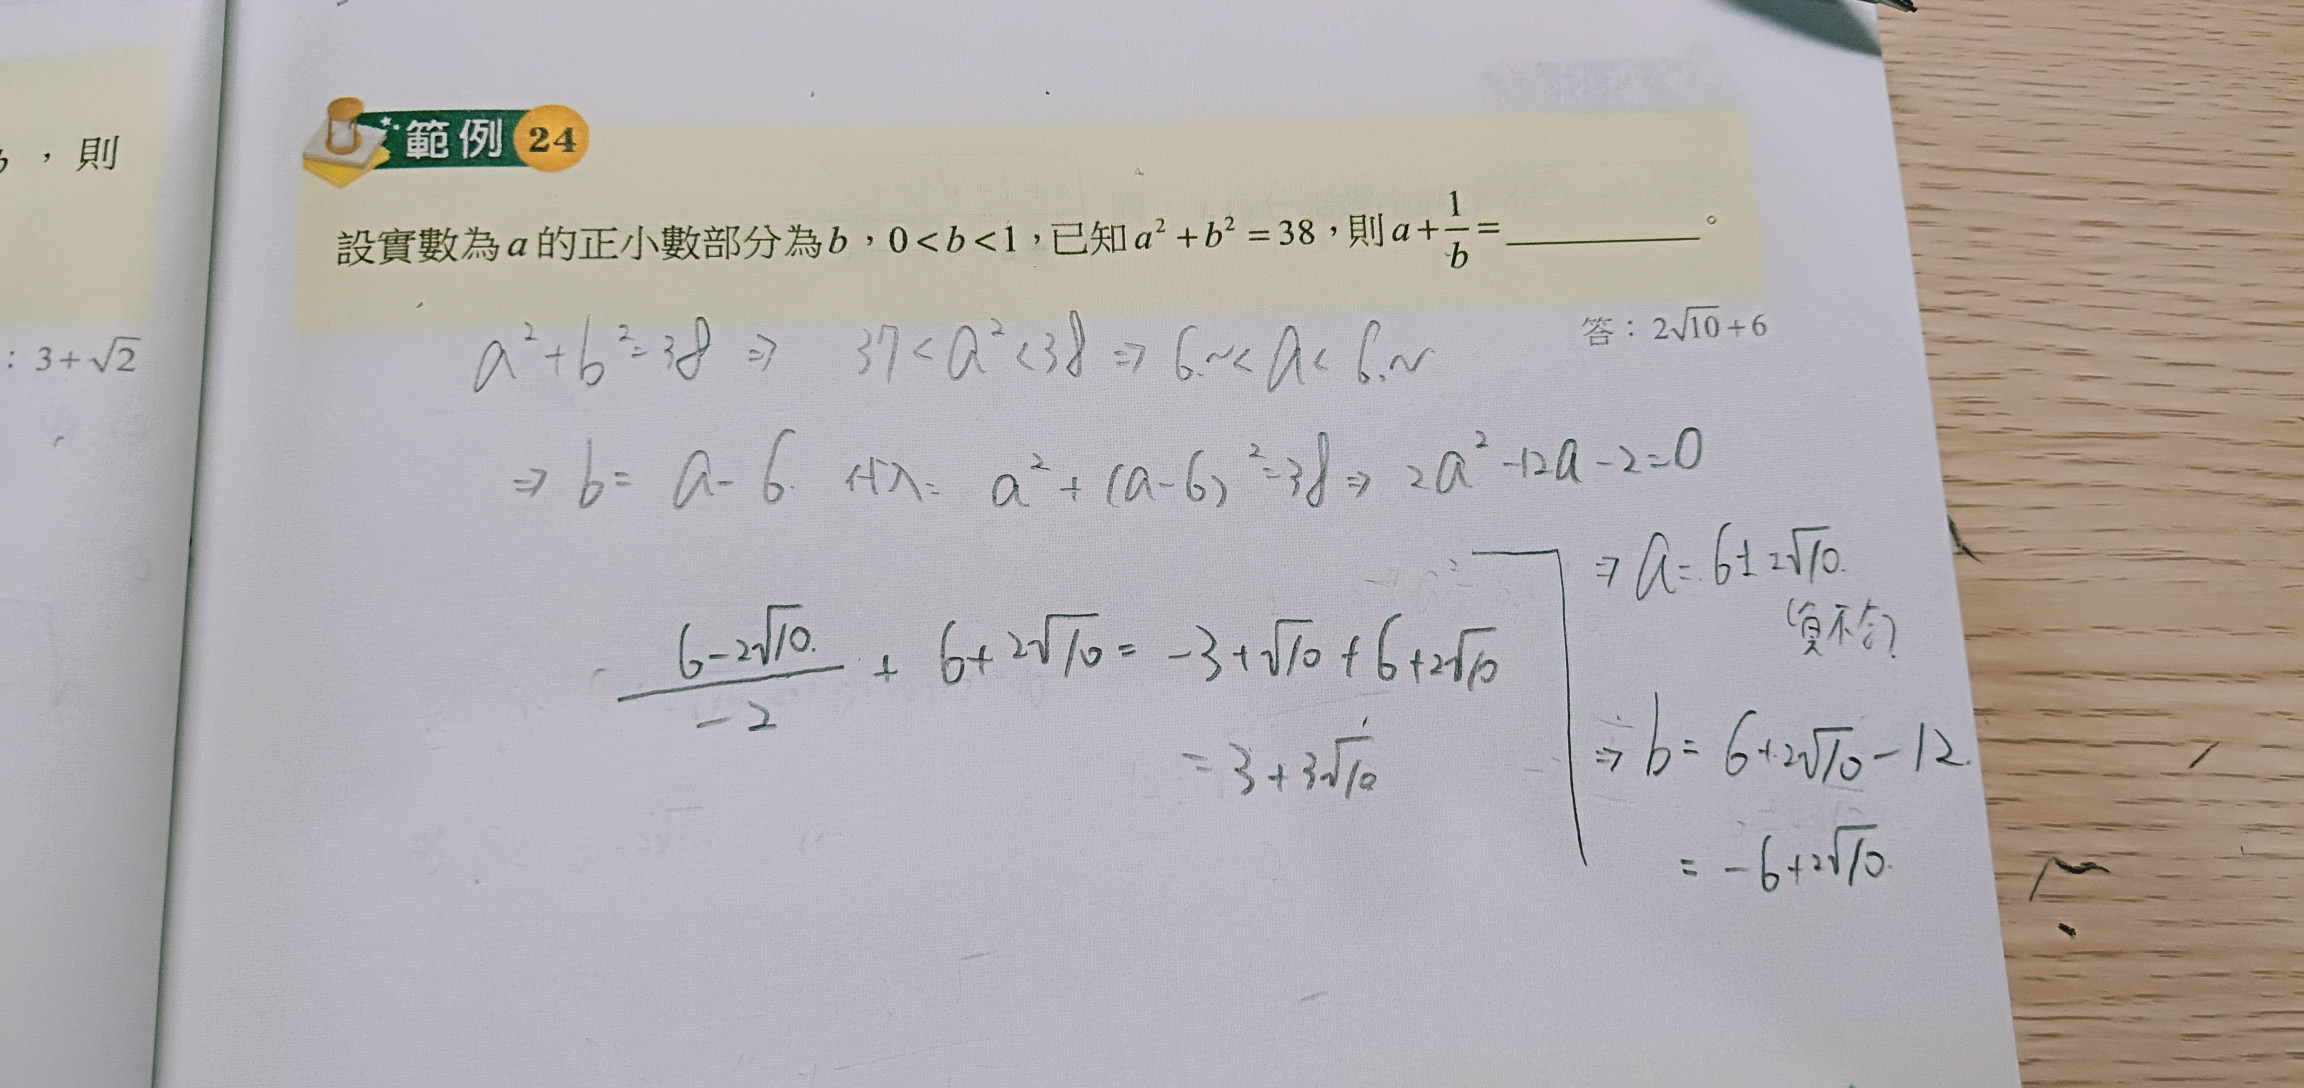 ，則
: 3+√2
範例 24
設實數為 a 的正小數部分為 b，0<b<1，已知 a²+b²=38，則 a+1/b=________。
答：2√10+6
a²+b²=38 ⇒ 37<a²<38 ⇒ 6.~<a<6.~
⇒ b= a-6. 代入= a²+(a-6)²=38 ⇒ 2a²-12a-2=0
⇒ a= 6±2√10.
(負不合)
(6-2√10.)/(-2) + 6+2√10 = -3+√10+6+2√10
= 3+3√10
⇒ b= 6+2√10-12.
= -6+2√10.